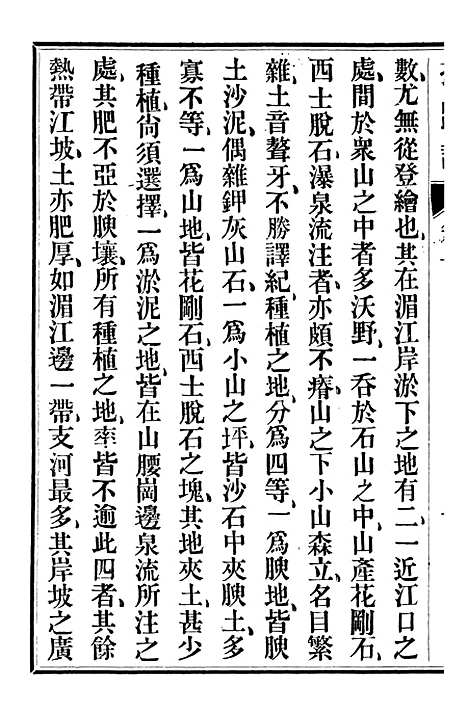 數、尤無從登繪也、其在湄江岸淤下之地有二、一近江口之
處、間於衆山之中者多沃野、一吞於石山之中、山產花剛石、
西士脫石、瀑泉流注者、亦頗不瘠、山之下小山森立、名目繁
雜、土音聱牙、不勝譯紀、種植之地、分爲四等、一爲腴地、皆腴
土沙泥、偶雜鉀灰山石、一爲小山之坪、皆沙石中夾腴土、多
寡不等、一爲山地、皆花剛石、西士脫石之塊、其地夾土甚少、
種植尙須選擇、一爲淤泥之地、皆在山腰崗邊泉流所注之
處、其肥不亞於腴壤、所有種植之地、率皆不逾此四者、其餘
熱帶江坡、土亦肥厚、如湄江邊一帶、支河最多、其岸坡之廣